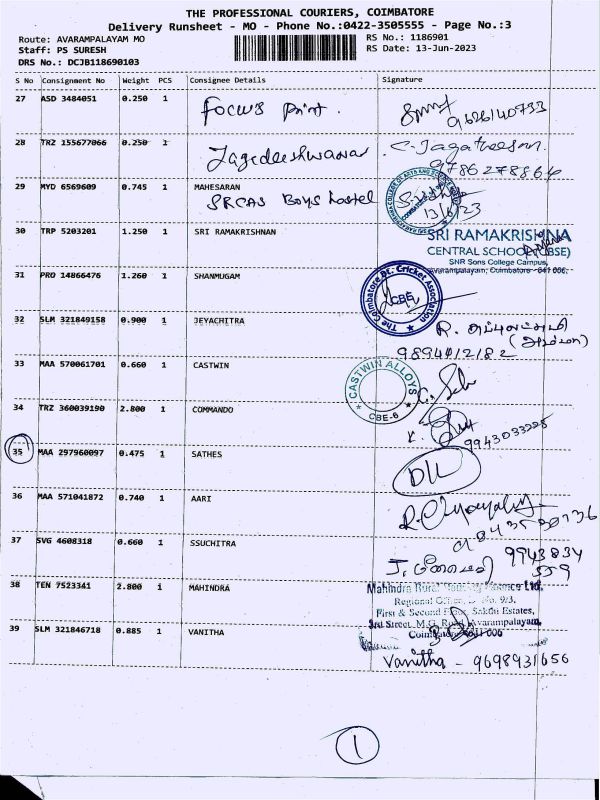 THE PROFESSIONAL COURIERS, COIMBATORE
Delivery Runsheet - MO - Phone No.:0422-3505555 - Page No.:3
Route: AVARAMPALAYAM MO
RS No.: 1186901
Staff: PS SURESH
RS Date: 13-Jun-2023
DRS No.: DCJB118690103
S No Consignment No Weight PCS Consignee Details Signature
27 ASD 3484051 0.250 1 Focus Print.
9626140793
28 TRZ 155677066 0.250 1 Jagedeeshwaran C-Jagatheesan
9786278864
29 MYD 6569609 0.745 1 MAHESARAN
SRCAS Boys hostel
13/6/23
30 TRP 5203201 1.250 1 SRI RAMAKRISHNAN
SRI RAMAKRISHNA
CENTRAL SCHOOL (CBSE)
SNR Sons College Campus,
Avarampalayam, Coimbatore - 641 006.
31 PRO 14866476 1.260 1 SHANMUGAM
The Coimbatore Dt. Cricket Association
CBE
32 SLM 321849158 0.900 1 JEYACHITRA
R.
(அம்மா)
9894012182
33 MAA 570061701 0.660 1 CASTWIN
CASTWIN ALLOYS
CBE-6
34 TRZ 360039190 2.800 1 COMMANDO
9943033225
35 MAA 297960097 0.475 1 SATHES
DLL
36 MAA 571041872 0.740 1 AARI
37 SVG 4608318 0.660 1 SSUCHITRA
9943834
559
38 TEN 7523341 2.800 1 MAHINDRA
Mahindra Rural Housing Finance Ltd,
Regional Office, D No. 9/3,
First & Second Floor, Sakthi Estates,
3rd Street, M.G. Road, Avarampalayam,
Coimbatore - 641 006
39 SLM 321846718 0.885 1 VANITHA
Vanitha - 9698931656
1